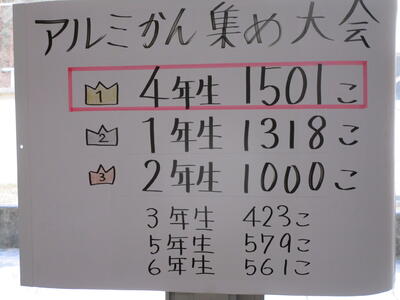 アルミかん集め大会
1 4年生 1501こ
2 1年生 1318こ
3 2年生 1000こ
3年生 423こ
5年生 579こ
6年生 561こ